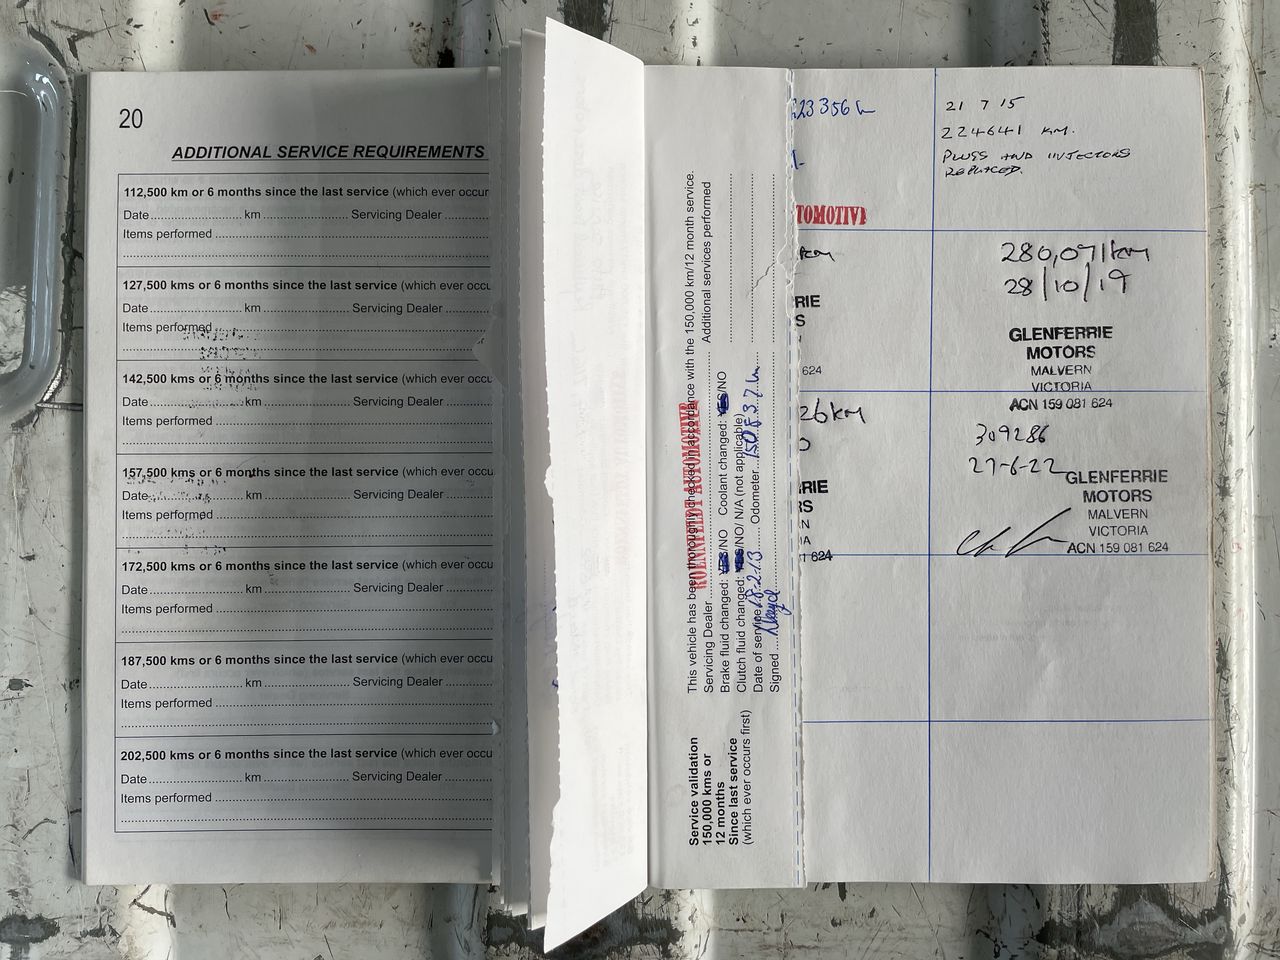 20
ADDITIONAL SERVICE REQUIREMENTS
112,500 km or 6 months since the last service (which ever occur
Date.................... km ................. Servicing Dealer ............
Items performed ....................
127,500 kms or 6 months since the last service (which ever occ
Date.................... km ................. Servicing Dealer ............
Items performed
142,500 kms or 6 months since the last service (which ever occu
Date.................... km ................. Servicing Dealer ............
Items performed ....................
157,500 kms or 6 months since the last service (which ever occu
Date.................... km ................. Servicing Dealer ............
Items performed ....................
172,500 kms or 6 months since the last service (which ever occu
Date.................... km ................. Servicing Dealer ............
Items performed ....................
187,500 kms or 6 months since the last service (which ever occu
Date.................... km ................. Servicing Dealer ............
Items performed ....................
202,500 kms or 6 months since the last service (which ever occu
Date.................... km ................. Servicing Dealer ............
Items performed ....................
Service validation
150,000 kms or
12 months
Since last service
(which ever occurs first)
This vehicle has been thoroughly checked in accordance with the 150,000 km/12 month service.
Servicing Dealer .................... Additional services performed
AUTOMOTIVE
Brake fluid changed: YES/NO Coolant changed: YES/NO
Clutch fluid changed: YES/NO/ N/A (not applicable)
Date of service Odometer
Signed
23356
TOMOTIVE
km
RIE
S
624
26km
RIE
RS
N
IA
1 624
21 7 15
224641 KM.
PLUGS AND INJECTORS
REPLACED.
280,071km
28/10/19
GLENFERRIE
MOTORS
MALVERN
VICTORIA
ACN 159 081 624
309286
27-6-22
GLENFERRIE
MOTORS
MALVERN
VICTORIA
ACN 159 081 624